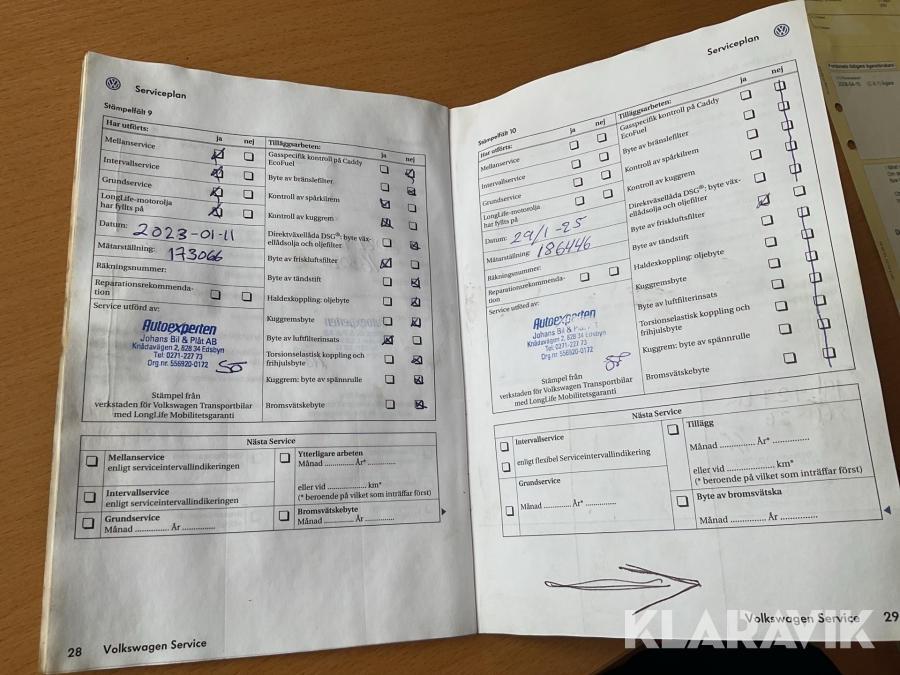 Serviceplan
Stämpelfält 9
Har utförts:
ja
nej
Mellanservice
Intervallservice
Grundservice
LongLife-motorolja
har fyllts på
Datum: 2023-01-11
Mätarställning: 173066
Räkningsnummer:
Reparationsrekommenda-
tion
Service utförd av:
Autoexperten
Johans Bil & Plåt AB
Knådavägen 2, 828 34 Edsbyn
Tel: 0271-227 73
Org.nr. 556920-0172
Stämpel från
verkstaden för Volkswagen Transportbilar
med LongLife Mobilitetsgaranti
Tilläggsarbeten:
ja
nej
Gasspecifik kontroll på Caddy
EcoFuel
Byte av bränslefilter
Kontroll av spårkilrem
Kontroll av kuggrem
Direktväxellåda DSG®: byte väx-
ellådsolja och oljefilter
Byte av friskluftsfilter
Byte av tändstift
Haldexkoppling: oljebyte
Kuggremsbyte
Byte av luftfilterinsats
Torsionselastisk koppling och
frihjulsbyte
Kuggrem: byte av spännrulle
Bromsvätskebyte
Nästa Service
Mellanservice
enligt serviceintervallindikeringen
Intervallservice
enligt serviceintervallindikeringen
Grundservice
Månad ............. År .............
Ytterligare arbeten
Månad ............. År* .............
eller vid ............... km*
(* beroende på vilket som inträffar först)
Bromsvätskebyte
Månad ............. År .............
28 Volkswagen Service
Serviceplan
Stämpelfält 10
Har utförts:
ja
nej
Mellanservice
Intervallservice
Grundservice
LongLife-motorolja
har fyllts på
Datum: 29/1-25
Mätarställning: 186446
Räkningsnummer:
Reparationsrekommenda-
tion
Service utförd av:
Autoexperten
Johans Bil & Plåt AB
Knådavägen 2, 828 34 Edsbyn
Tel: 0271-227 73
Org.nr. 556920-0172
Stämpel från
verkstaden för Volkswagen Transportbilar
med LongLife Mobilitetsgaranti
Tilläggsarbeten:
ja
nej
Gasspecifik kontroll på Caddy
EcoFuel
Byte av bränslefilter
Kontroll av spårkilrem
Kontroll av kuggrem
Direktväxellåda DSG®: byte väx-
ellådsolja och oljefilter
Byte av friskluftsfilter
Byte av tändstift
Haldexkoppling: oljebyte
Kuggremsbyte
Byte av luftfilterinsats
Torsionselastisk koppling och
frihjulsbyte
Kuggrem: byte av spännrulle
Bromsvätskebyte
Nästa Service
Intervallservice
enligt flexibel Serviceintervallindikering
Grundservice
Månad ............. År* .............
Tillägg
Månad ............. År* .............
eller vid ............... km*
(* beroende på vilket som inträffar först)
Byte av bromsvätska
Månad ............. År .............
Volkswagen Service 29
KLARAVIK